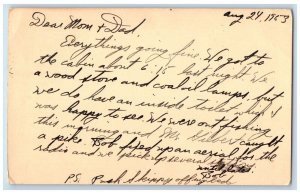 Aug 24, 1953
Dear Mom & Dad.
Everythings going fine. We got to
the cabin about 6:15 last night. We
a wood stove and coaloil lamps. but
we do have an inside toilet which I
was happy to see. We were out fishing
this morning and Mr. caught
a pike. Bob fixed up an aerial for the
radio and we pick up several
and
Bob
P.S. Push Skippy off